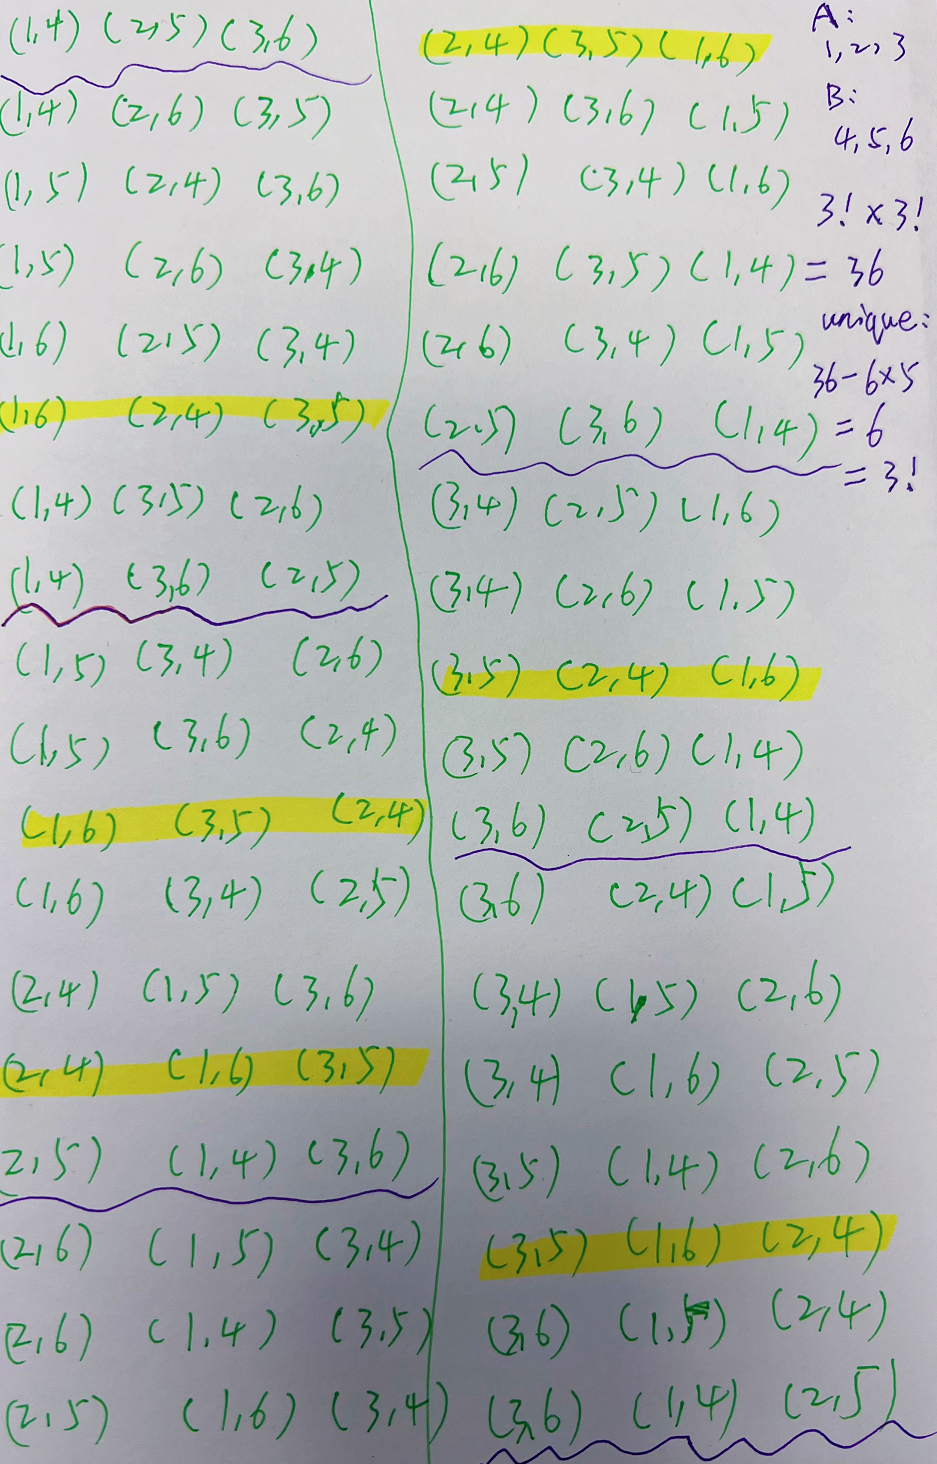 (1,4) (2,5) (3,6)
(1,4) (2,6) (3,5)
(1,5) (2,4) (3,6)
1,5) (2,6) (3,4)
(1,6) (2,5) (3,4)
(1,6) (2,4) (3,5)
(1,4) (3,5) (2,6)
(1,4) (3,6) (2,5)
(1,5) (3,4) (2,6)
(1,5) (3,6) (2,4)
(1,6) (3,5) (2,4)
(1,6) (3,4) (2,5)
(2,4) (1,5) (3,6)
(2,4) (1,6) (3,5)
2,5) (1,4) (3,6)
(2,6) (1,5) (3,4)
(2,6) (1,4) (3,5)
(2,5) (1,6) (3,4)
(2,4) (3,5) (1,6)
(2,4) (3,6) (1,5)
(2,5) (3,4) (1,6)
(2,6) (3,5) (1,4)
(2,6) (3,4) (1,5)
(2,5) (3,6) (1,4)
(3,4) (2,5) (1,6)
(3,4) (2,6) (1,5)
(3,5) (2,4) (1,6)
(3,5) (2,6) (1,4)
(3,6) (2,5) (1,4)
(3,6) (2,4) (1,5)
(3,4) (1,5) (2,6)
(3,4) (1,6) (2,5)
(3,5) (1,4) (2,6)
(3,5) (1,6) (2,4)
(3,6) (1,5) (2,4)
(3,6) (1,4) (2,5)
A:
1,2,3
B:
4,5,6
3! × 3!
= 36
unique:
36-6×5
= 6
= 3!